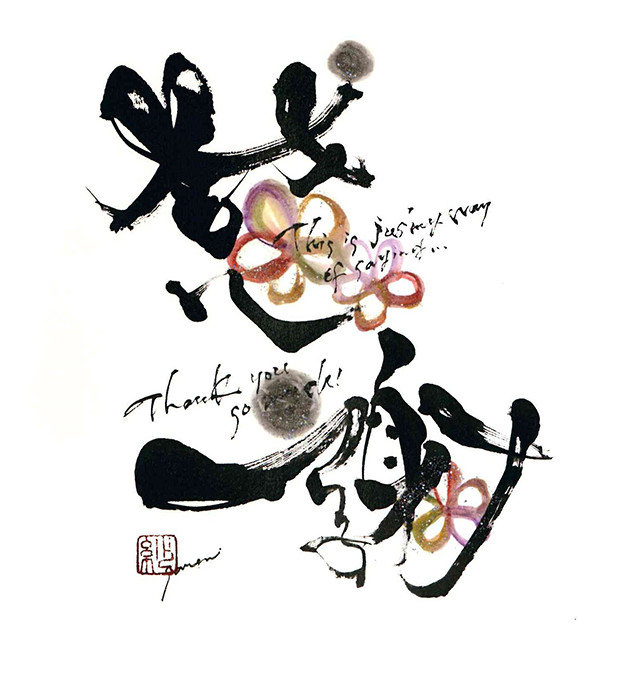 感謝
This is just my way
of saying it...
Thank you
so much!